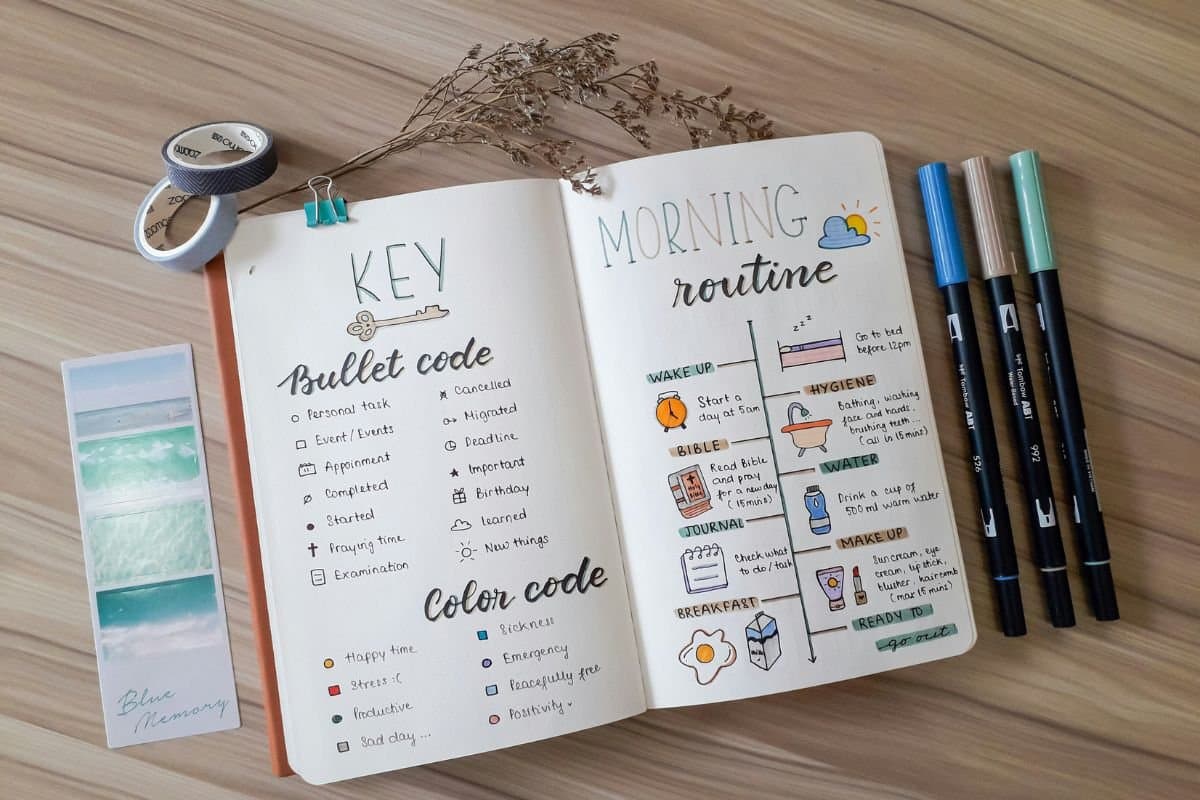 KEY
Bullet code
Personal task
Event/Events
Appoinment
Completed
Started
Praying time
Examination
Cancelled
Migrated
Deadline
Important
Birthday
learned
New things
Color code
Happy time
Stress :(
Productive
Sad day ...
Sickness
Emergency
Peacefully free
Positivity
MORNING
routine
zzz
Go to bed
before 12pm
WAKE UP
Start a
day at 5am
HYGIENE
Bathing, washing
face and hands.
brushing teeth...
(all in 15mins)
BIBLE
Holy
Read Bible
and pray
for a new day
(15mins)
WATER
Drink a cup of
500 ml warm water
JOURNAL
Check what
to do/task
MAKE UP
Suncream, eye
cream, lip stick,
blusher, haircomb
(max 15 mins)
BREAKFAST
Milk
READY TO
go out
Blue
Memory
Tombow ABT
526
Tombow ABT
992